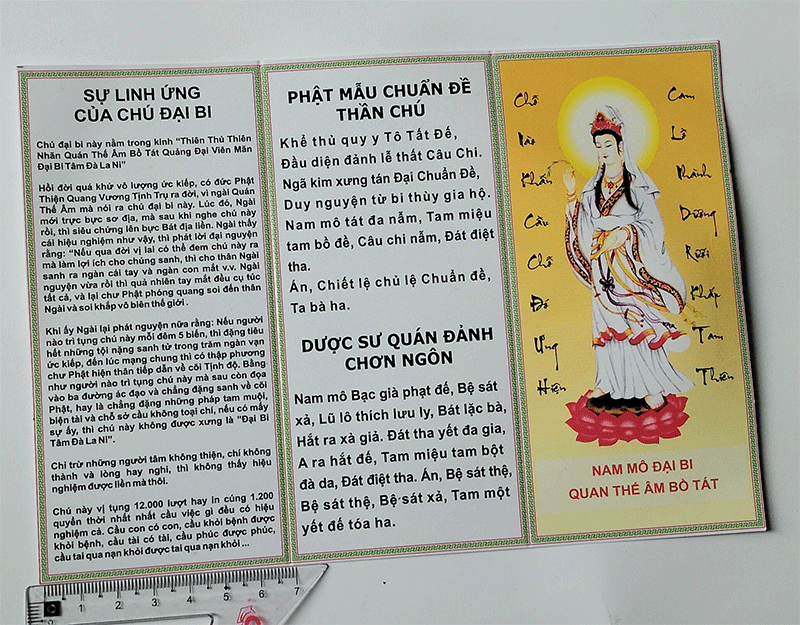 SỰ LINH ỨNG
CỦA CHÚ ĐẠI BI
Chú đại bi này nằm trong kinh "Thiên Thủ Thiên
Nhãn Quán Thế Âm Bồ Tát Quảng Đại Viên Mãn
Đại Bi Tâm Đà La Ni"
Hồi đời quá khứ vô lượng ức kiếp, có đức Phật
Thiện Quang Vương Tịnh Trụ ra đời, vì ngài Quán
Thế Âm mà nói ra chú đại bi này. Lúc đó, Ngài
mới trực bực sơ địa, mà sau khi nghe chú này
rồi, thì siêu chứng lên bực Bát địa liền. Ngài thấy
cái hiệu nghiệm như vậy, thì phát lời đại nguyện
rằng: "Nếu qua đời vị lai có thể đem chú này ra
mà làm lợi ích cho chúng sanh, thì cho thân Ngài
sanh ra ngàn cái tay và ngàn con mắt v.v. Ngài
nguyện vừa rồi thì quả nhiên tay mắt đều cụ túc
tất cả, và lại chư Phật phóng quang soi đến thân
Ngài và soi khắp vô biên thế giới .
Khi ấy Ngài lại phát nguyện nữa rằng: Nếu người
nào trì tụng chú này mỗi đêm 5 biến, thì đặng tiêu
hết những tội nặng sanh tử trong trăm ngàn vạn
ức kiếp, đến lúc mạng chung thì có thập phương
chư Phật hiện thân tiếp dẫn về cõi Tịnh độ. Bằng
như người nào trì tụng chú này mà sau còn đọa
vào ba đường ác đạo và chẳng đặng sanh về cõi
Phật, hay là chẳng đặng những pháp tam muội,
biện tài và chỗ sở cầu không toại chí, nếu có mấy
sự ấy, thì chú này không được xưng là "Đại Bi
Tâm Đà La Ni".
Chỉ trừ những người tâm không thiện, chí không
thành và lòng hay nghi, thì không thấy hiệu
nghiệm được liền mà thôi.
Chú này vị tụng 12.000 lượt hay in cúng 1.200
quyển thời nhất nhất cầu việc gì đều có hiệu
nghiệm cả. Cầu con có con, cầu khỏi bệnh được
khỏi bệnh, cầu tài có tài, cầu phúc được phúc,
cầu tai qua nạn khỏi được tai qua nạn khỏi ...
PHẬT MẪU CHUẨN ĐỀ
THẦN CHÚ
Khể thủ quy y Tô Tất Đế,
Đầu diện đảnh lễ thất Câu Chi.
Ngã kim xưng tán Đại Chuẩn Đề,
Duy nguyện từ bi thùy gia hộ.
Nam mô tát đa nẫm, Tam miệu
tam bồ đề, Câu chi nẫm, Đát điệt
tha.
Án, Chiết lệ chủ lệ Chuẩn đề,
Ta bà ha.
DƯỢC SƯ QUÁN ĐẢNH
CHƠN NGÔN
Nam mô Bạc già phạt đế, Bệ sát
xả, Lũ lô thích lưu ly, Bát lặc bà,
Hắt ra xà giả. Đát tha yết đa gia,
A ra hắt đế, Tam miệu tam bột
đà da, Đát điệt tha. Án, Bệ sát thệ,
Bệ sát thệ, Bệ sát xả, Tam một
yết đế tóa ha.
Chỗ
Nào
Khẩn
Cầu
Chỗ
Đó
Ứng
Hiện
Cam
Lồ
Nhành
Dương
Rưới
Khắp
Tam
Thiên
NAM MÔ ĐẠI BI
QUAN THẾ ÂM BỒ TÁT
0 1 2 3 4 5 6 7